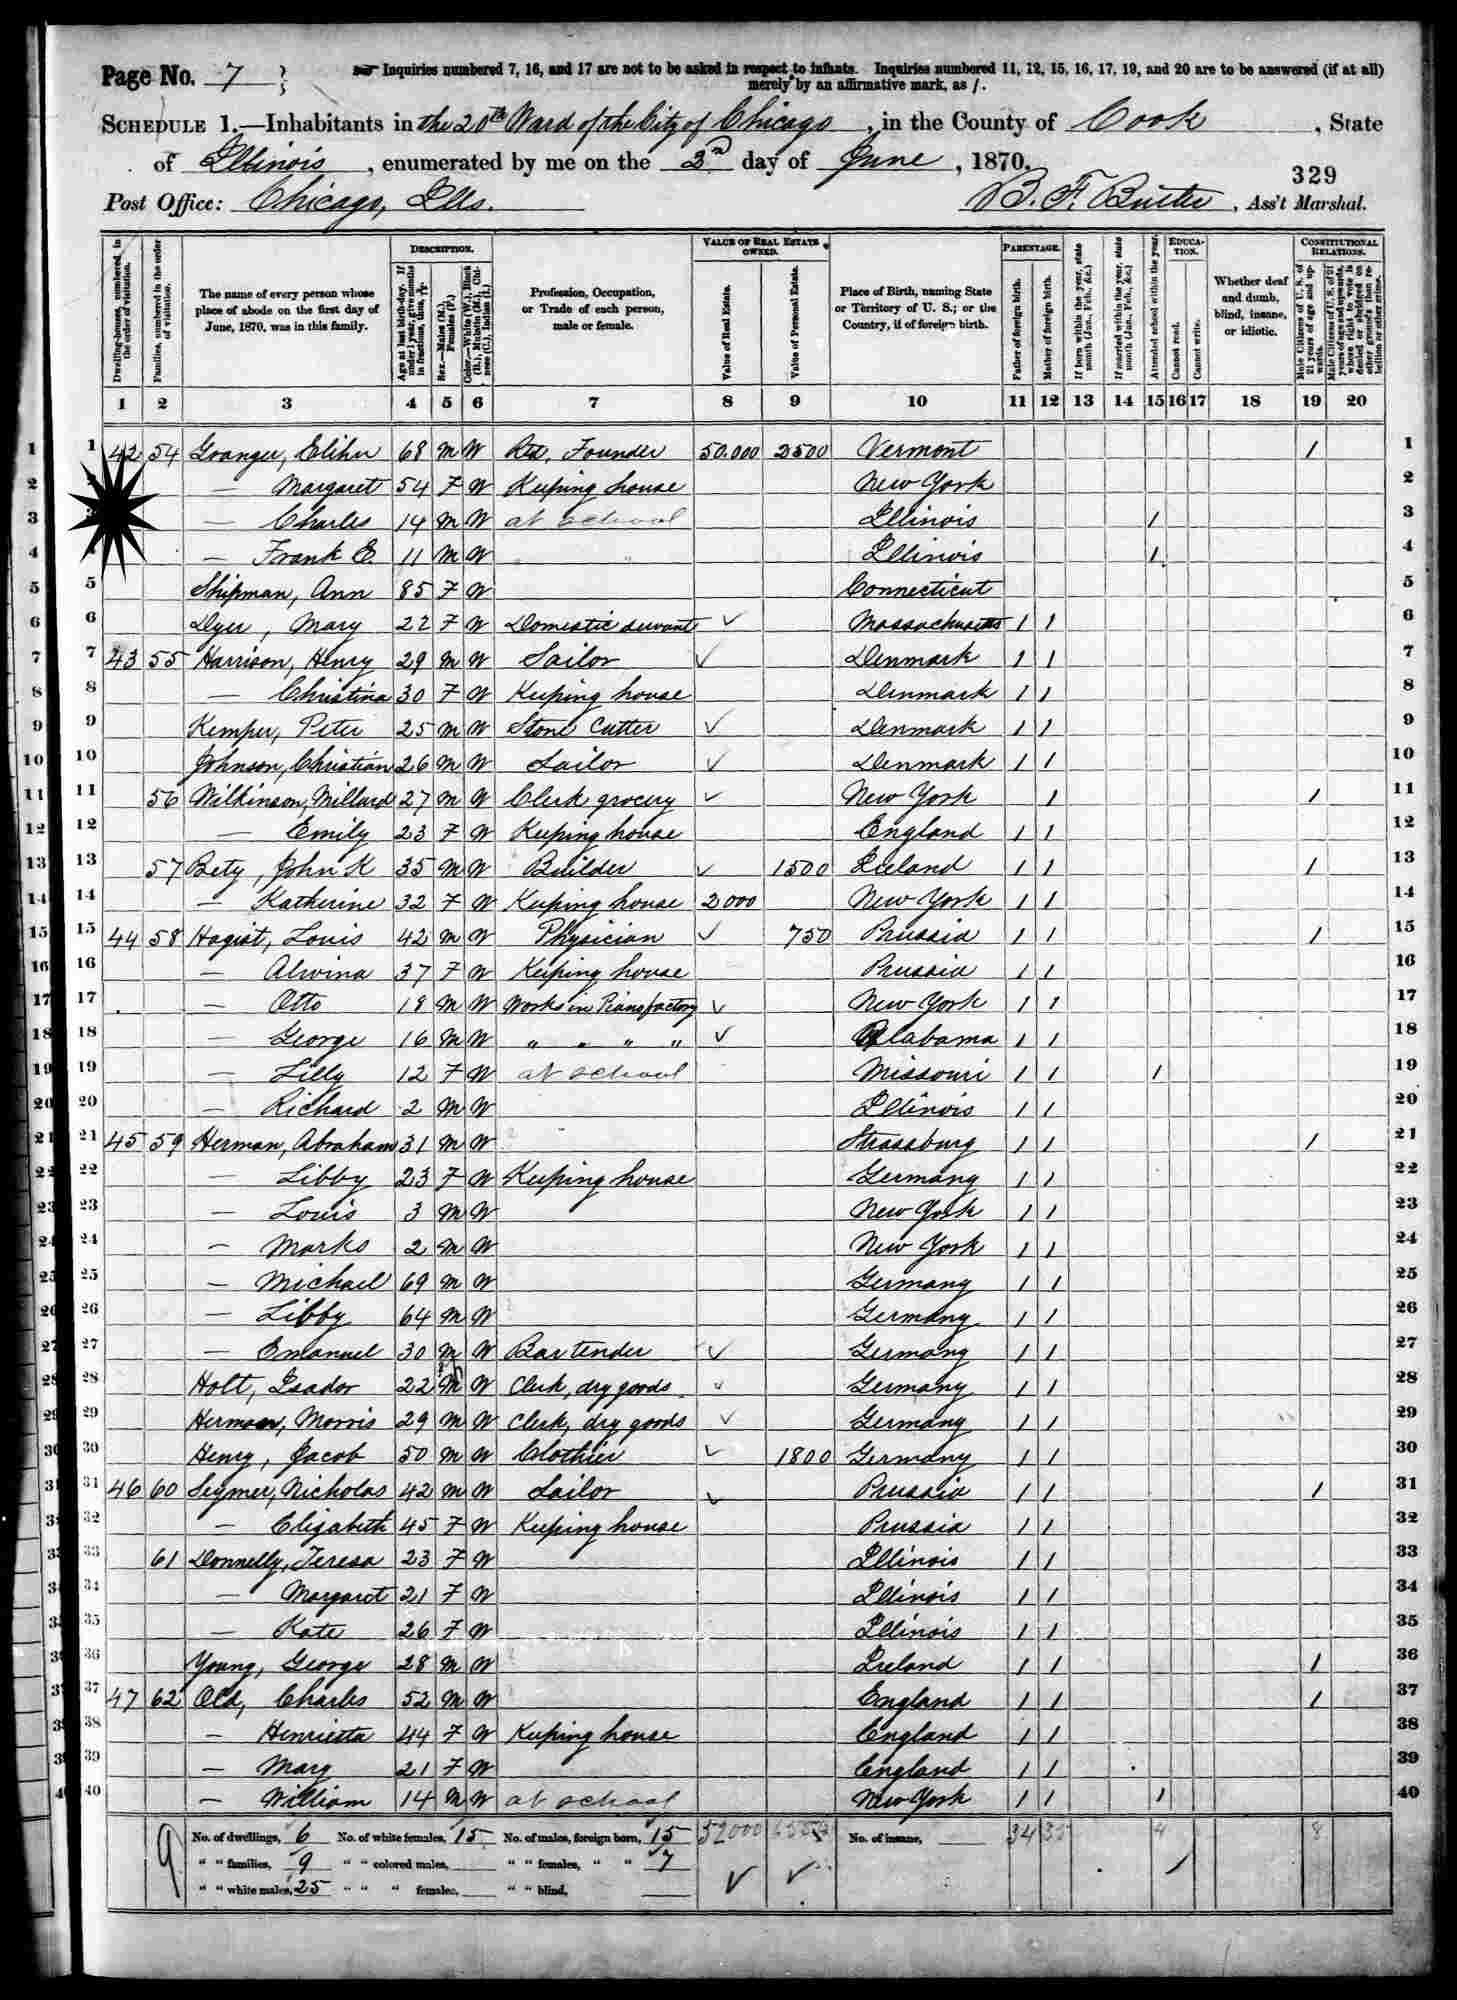 Page No. 7
Inquiries numbered 7, 16, and 17 are not to be asked in respect to infants. Inquiries numbered 11, 12, 15, 16, 17, 19, and 20 are to be answered (if at all)
merely by an affirmative mark, as /.
SCHEDULE 1.—Inhabitants in the 20th Ward of the City of Chicago, in the County of Cook, State
of Illinois, enumerated by me on the 3rd day of June, 1870.
329
Post Office: Chicago, Ills. B. F. , Ass't Marshal.
DESCRIPTION. VALUE OF REAL ESTATE OWNED. PARENTAGE. EDUCATION. CONSTITUTIONAL RELATIONS.
Dwelling-houses, numbered in the order of visitation. Families, numbered in the order of visitation. The name of every person whose place of abode on the first day of June, 1870, was in this family. Age at last birth-day. If under 1 year, give months in fractions, thus, 3/12. Sex.—Males (M.), Females (F.) Color.—White (W.), Black (B.), Mulatto (M.), Chinese (C.), Indian (I.) Profession, Occupation, or Trade of each person, male or female. Value of Real Estate. Value of Personal Estate. Place of Birth, naming State or Territory of U. S.; or the Country, if of foreign birth. Father of foreign birth. Mother of foreign birth. If born within the year, state month (Jan., Feb., &c.) If married within the year, state month (Jan., Feb., &c.) Attended school within the year. Cannot read. Cannot write. Whether deaf and dumb, blind, insane, or idiotic. Male Citizens of U. S. of 21 years of age and upwards. Male Citizens of U. S. of 21 years of age and upwards, whose right to vote is denied or abridged on other grounds than rebellion or other crime.
1 2 3 4 5 6 7 8 9 10 11 12 13 14 15 16 17 18 19 20
1 42 54 Granger, Elihu 68 M W Ret. Founder 50.000 2500 Vermont 1 1
2 — Margaret 54 F W Keeping house New York 2
3 — Charles 14 M W at school Illinois 1 3
4 — Frank E. 11 M W " " Illinois 1 4
5 Shipman, Ann 85 F W Connecticut 5
6 Dyer, Mary 22 F W Domestic servant ✓ Massachusetts 1 1 6
7 43 55 Harrison, Henry 29 M W Sailor ✓ Denmark 1 1 7
8 — Christina 30 F W Keeping house Denmark 1 1 8
9 Kemper, Peter 25 M W Stone Cutter ✓ Denmark 1 1 9
10 Johnson, Christian 26 M W Sailor ✓ Denmark 1 1 10
11 56 Wilkinson, Millard 27 M W Clerk grocery ✓ New York 1 1 11
12 — Emily 23 F W Keeping house England 1 1 12
13 57 Bety, John K 35 M W Builder ✓ 1500 Ireland 1 1 1 13
14 — Katherine 32 F W Keeping house 2000 New York 1 1 14
15 44 58 Hagist, Louis 42 M W Physician ✓ 750 Prussia 1 1 1 15
16 — Alwina 37 F W Keeping house Prussia 1 1 16
17 — Otto 18 M W Works in Pianofactory ✓ New York 1 1 17
18 — George 16 M W " " " " ✓ Alabama 1 1 18
19 — Lilly 12 F W at school Missouri 1 1 1 19
20 — Richard 2 M W Illinois 1 1 20
21 45 59 Herman, Abraham 31 M W Strassburg 1 1 1 21
22 — Libby 23 F W Keeping house Germany 1 1 22
23 — Louis 3 M W New York 1 1 23
24 — Marks 2 M W New York 1 1 24
25 — Michael 69 M W Germany 1 1 25
26 — Libby 64 M W Germany 1 1 26
27 — Emanuel 30 M W Bartender ✓ Germany 1 1 27
28 Holt, Isador 22 M W Clerk, dry goods ✓ Germany 1 1 28
29 Herman, Morris 29 M W Clerk, dry goods ✓ Germany 1 1 29
30 Henry, Jacob 50 M W Clothier ✓ 1800 Germany 1 1 30
31 46 60 Seymer, Nicholas 42 M W Sailor ✓ Prussia 1 1 1 31
32 — Elizabeth 45 F W Keeping house Prussia 1 1 32
33 61 Donnelly, Teresa 23 F W Illinois 1 1 33
34 — Margaret 21 F W Illinois 1 1 34
35 — Kate 26 F W Illinois 1 1 35
36 Young, George 28 M W Ireland 1 1 1 36
37 47 62 Old, Charles 52 M W England 1 1 1 37
38 — Henrietta 44 F W Keeping house England 1 1 38
39 — Mary 21 F W England 1 1 39
40 — William 14 M W at school New York 1 1 1 40
9 No. of dwellings, 6 No. of white females, 15 No. of males, foreign born, 15 52000 No. of insane, 34 35 4 8
" " families, 9 " " colored males, " " females, " " 7 ✓ ✓
" " white males, 25 " " " females, " " blind,